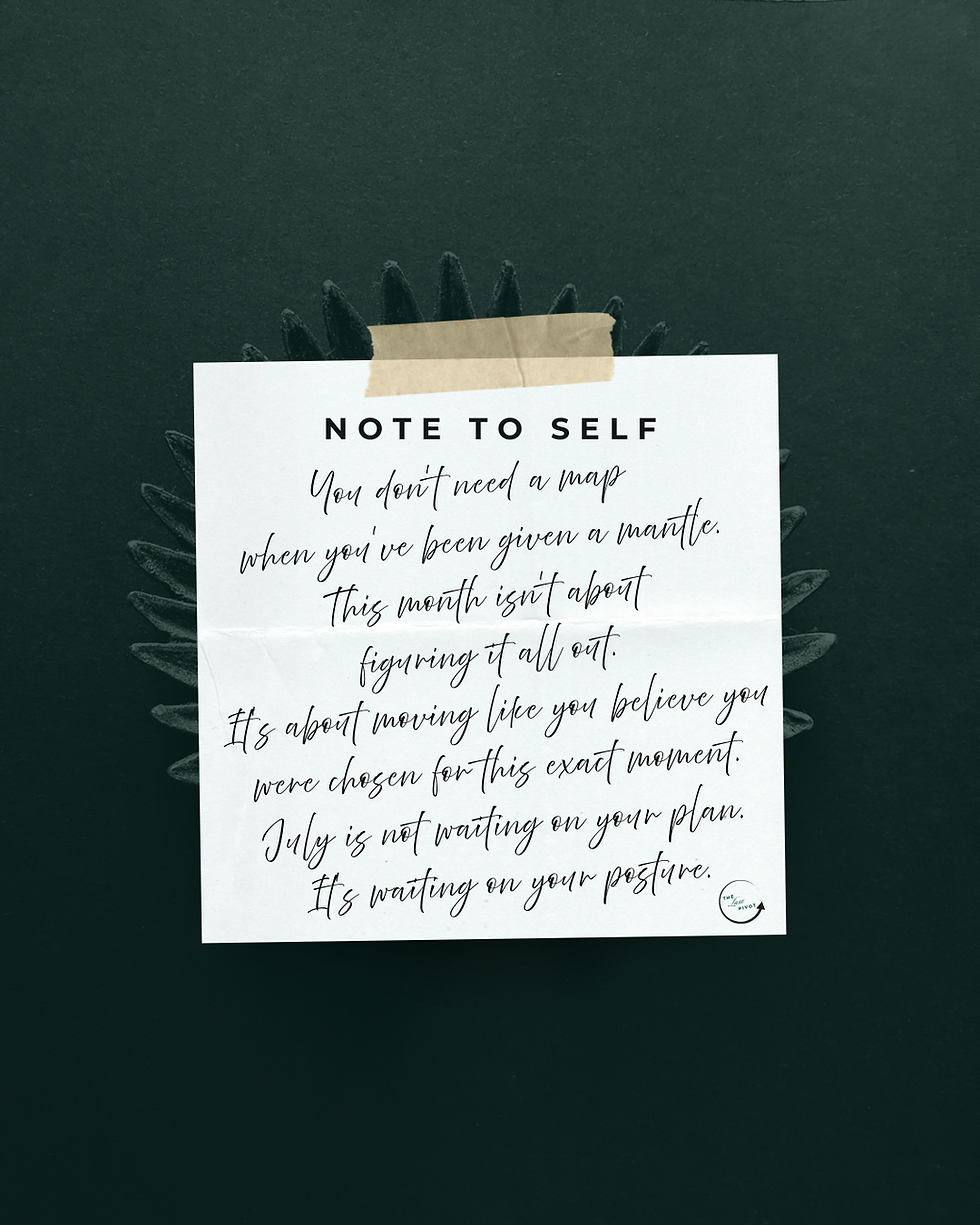 NOTE TO SELF
You don't need a map
when you've been given a mantle.
This month isn't about
figuring it all out.
It's about moving like you believe you
were chosen for this exact moment.
July is not waiting on your plan.
It's waiting on your posture.
THE
Luxe
PIVOT